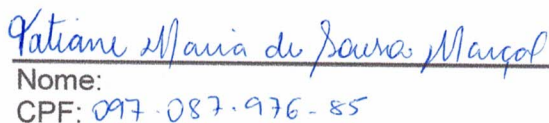 Tatiane Maria de Sousa Marçal
Nome:
CPF: 097.087.976-85